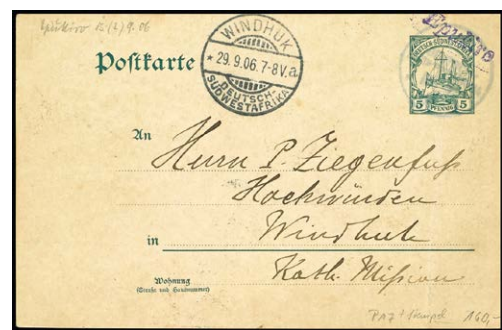 Epukiro 9.06
Epukiro
WINDHUK
* 29.9.06.7-8V. a
DEUTSCH-
SÜDWESTAFRIKA
DEUTSCH-SÜDWESTAFRIKA
5 PFENNIG 5
Postkarte
An
Herrn P. Ziegenfuß
Hochwürden
in Windhuk
Kath. Mission
Wohnung
(Straße und Hausnummer)
Stempel 160,-